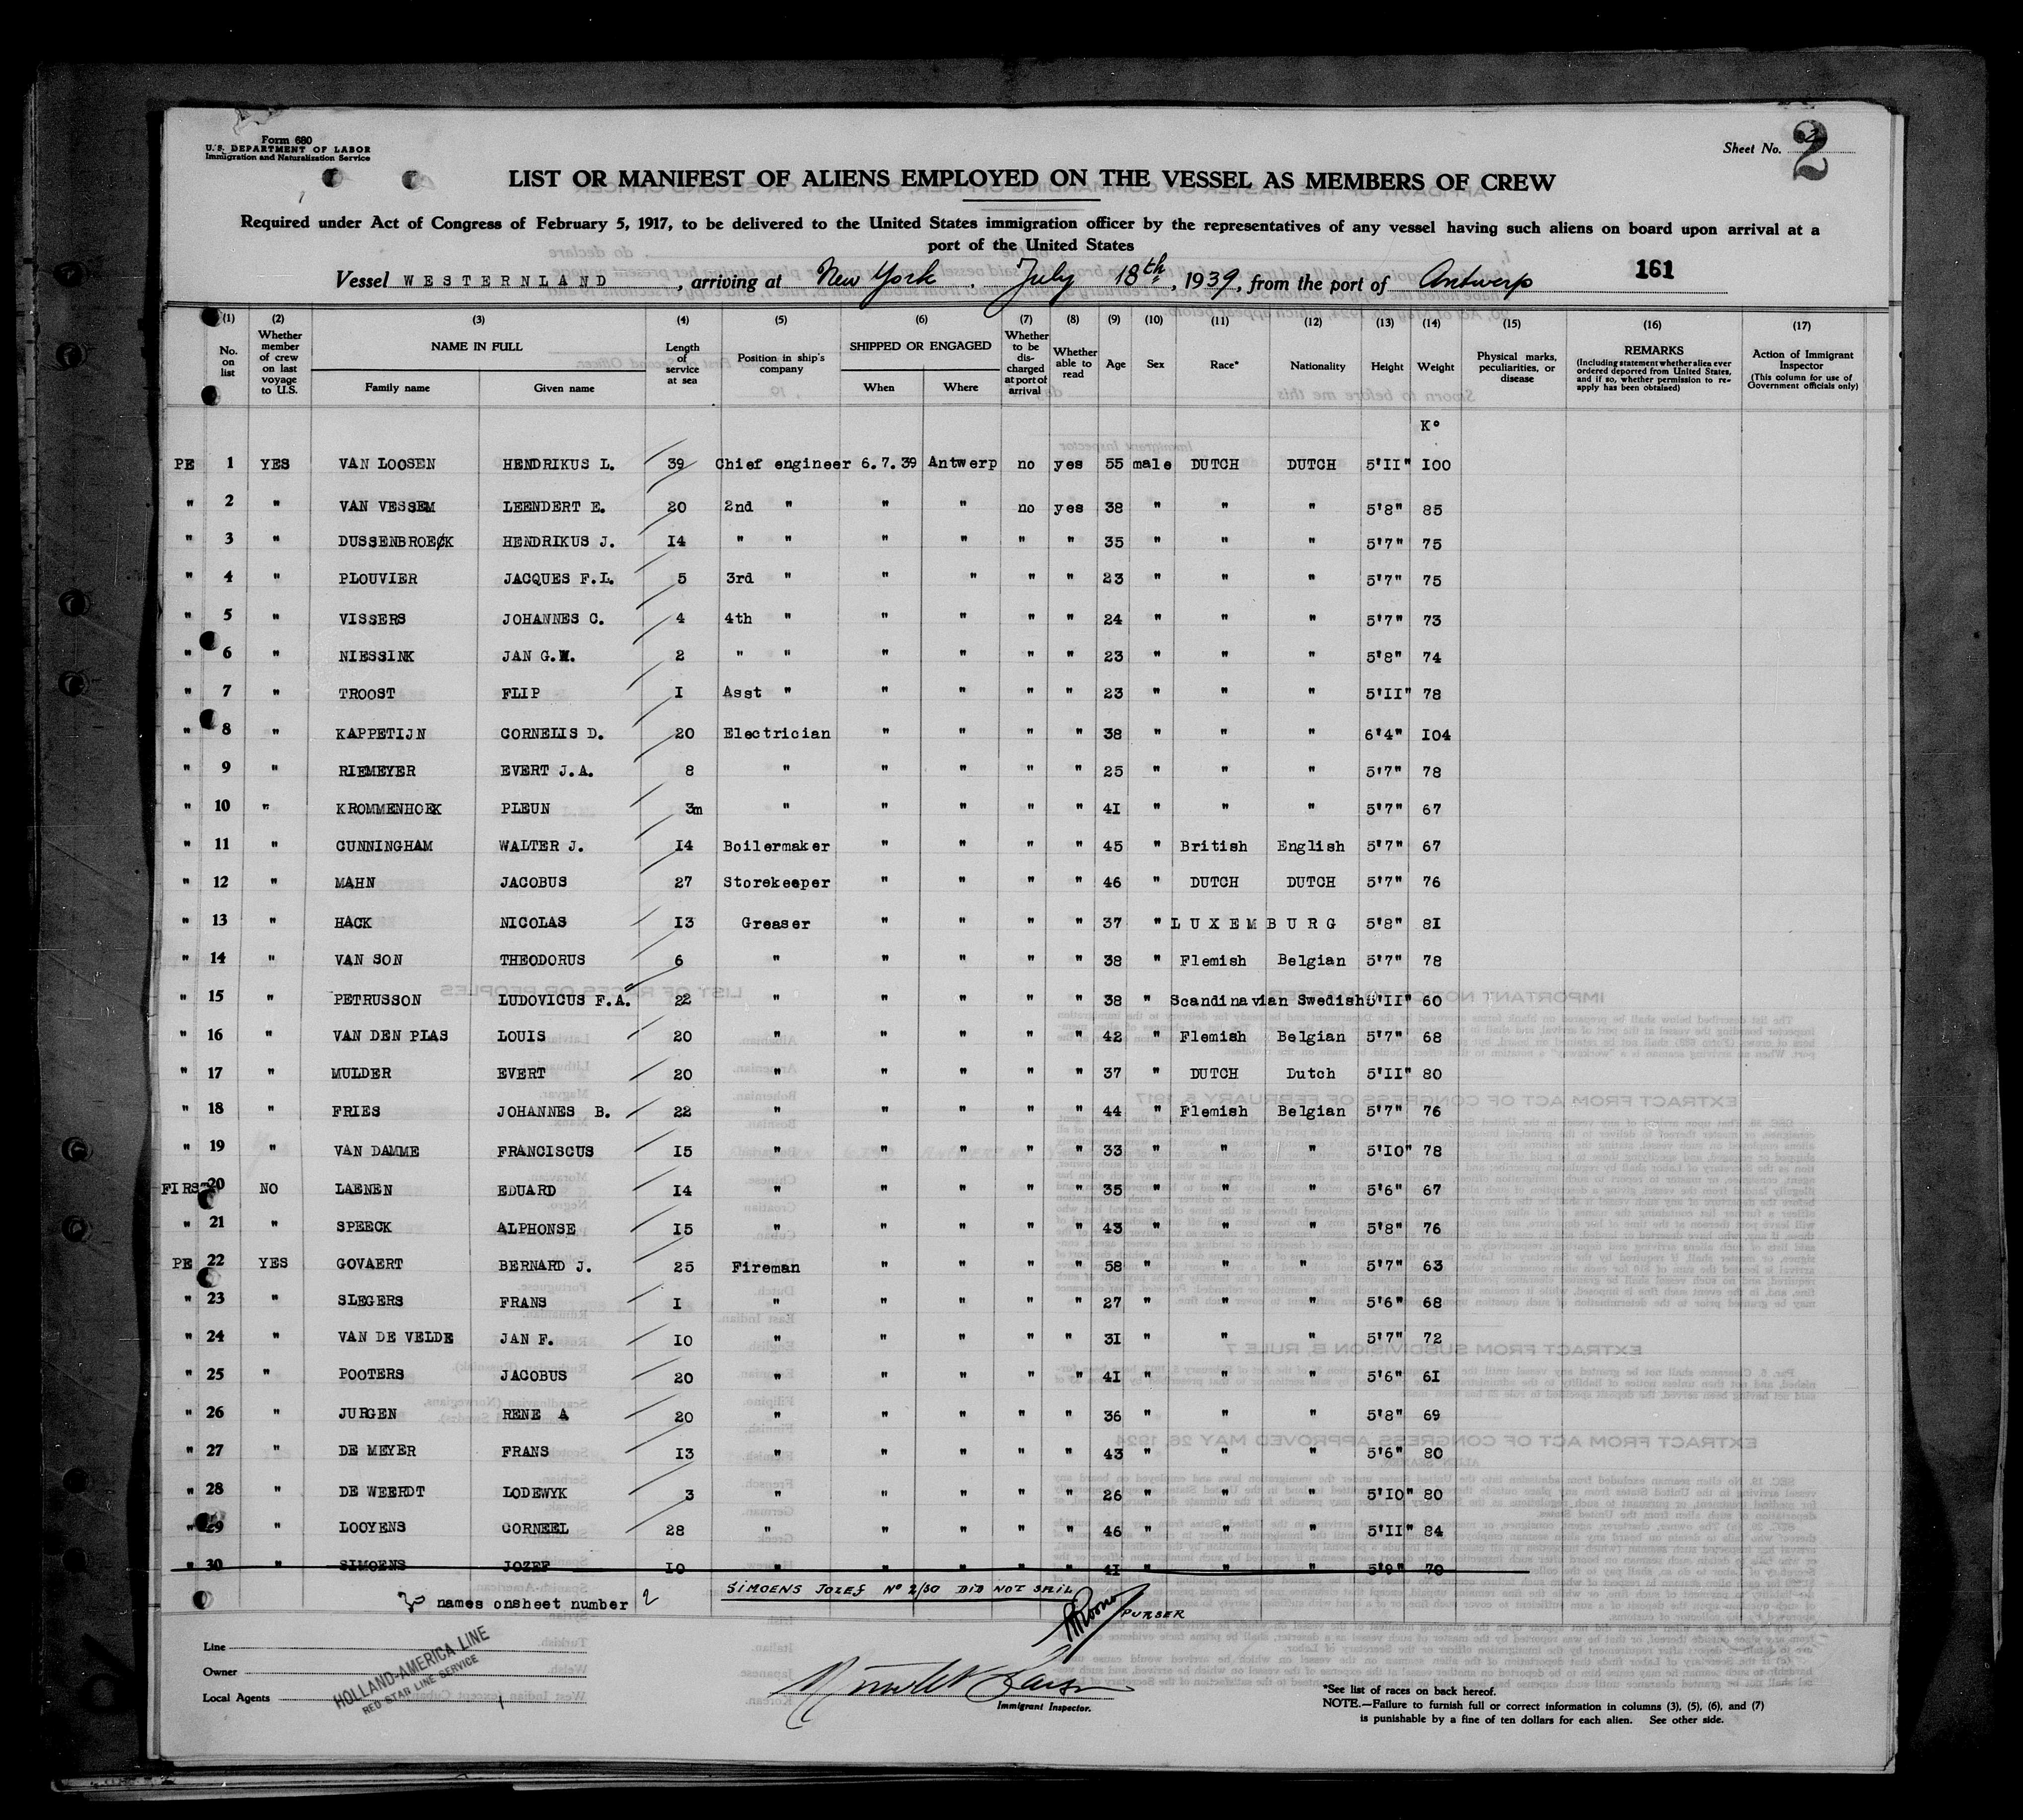 Form 680
U.S. DEPARTMENT OF LABOR
Immigration and Naturalization Service
Sheet No. 2
2
LIST OR MANIFEST OF ALIENS EMPLOYED ON THE VESSEL AS MEMBERS OF CREW
Required under Act of Congress of February 5, 1917, to be delivered to the United States immigration officer by the representatives of any vessel having such aliens on board upon arrival at a
port of the United States
161
Vessel WESTERNLAND, arriving at New York, July 18th, 1939, from the port of Antwerp
(1) No. on list (2) Whether member of crew on last voyage to U.S. (3) NAME IN FULL Family name Given name (4) Length of service at sea (5) Position in ship's company (6) SHIPPED OR ENGAGED When Where (7) Whether to be discharged at port of arrival (8) Whether able to read (9) Age (10) Sex (11) Race* (12) Nationality (13) Height (14) Weight (15) Physical marks, peculiarities, or disease (16) REMARKS (Including statement whether alien ever ordered deported from United States, and if so, whether permission to reapply has been obtained) (17) Action of Immigrant Inspector (This column for use of Government officials only)
K°
PE 1 YES VAN LOOSEN HENDRIKUS L. 39 Chief engineer 6.7.39 Antwerp no yes 55 male DUTCH DUTCH 5'II" I00
" 2 " VAN VESSEM LEENDERT E. 20 2nd " " " no yes 38 " " " 5'8" 85
" 3 " DUSSENBROECK HENDRIKUS J. I4 " " " " " " 35 " " " 5'7" 75
" 4 " PLOUVIER JACQUES F.L. 5 3rd " " " " " 23 " " " 5'7" 75
" 5 " VISSERS JOHANNES C. 4 4th " " " " " 24 " " " 5'7" 73
" 6 " NIESSINK JAN G.W. 2 " " " " " " 23 " " " 5'8" 74
" 7 " TROOST FLIP I Asst " " " " " 23 " " " 5'II" 78
" 8 " KAPPETIJN CORNELIS D. 20 Electrician " " " " 38 " " " 6'4" I04
" 9 " RIEMEYER EVERT J.A. 8 " " " " " 25 " " " 5'7" 78
" 10 " KROMMENHOEK PLEUN 3m " " " " " 4I " " " 5'7" 67
" 11 " CUNNINGHAM WALTER J. I4 Boilermaker " " " " 45 " British English 5'7" 67
" 12 " MAHN JACOBUS 27 Storekeeper " " " " 46 " DUTCH DUTCH 5'7" 76
" 13 " HACK NICOLAS I3 Greaser " " " " 37 " LUXEMBURG 5'8" 8I
" 14 " VAN SON THEODORUS 6 " " " " " 38 " Flemish Belgian 5'7" 78
" 15 " PETRUSSON LUDOVICUS F.A. 22 " " " " " 38 " Scandinavian Swedish 5'II" 60
" 16 " VAN DEN PLAS LOUIS 20 " " " " " 42 " Flemish Belgian 5'7" 68
" 17 " MULDER EVERT 20 " " " " " 37 " DUTCH Dutch 5'II" 80
" 18 " FRIES JOHANNES B. 22 " " " " " 44 " Flemish Belgian 5'7" 76
" 19 " VAN DAMME FRANCISCUS I5 " " " " " 33 " " " 5'I0" 78
FIRST 20 NO LAENEN EDUARD I4 " " " " " 35 " " " 5'6" 67
" 21 " SPEECK ALPHONSE I5 " " " " " 43 " " " 5'8" 76
PE 22 YES GOVAERT BERNARD J. 25 Fireman " " " " 58 " " " 5'7" 63
" 23 " SLEGERS FRANS I " " " " " 27 " " " 5'6" 68
" 24 " VAN DE VELDE JAN F. I0 " " " " " 3I " " " 5'7" 72
" 25 " POOTERS JACOBUS 20 " " " " " 4I " " " 5'6" 6I
" 26 " JURGEN RENE A 20 " " " " " 36 " " " 5'8" 69
" 27 " DE MEYER FRANS I3 " " " " " 43 " " " 5'6" 80
" 28 " DE WEERDT LODEWYK 3 " " " " " 26 " " " 5'I0" 80
" 29 " LOOYENS CORNEEL 28 " " " " " 46 " " " 5'II" 84
" 30 " SIMOENS JOZEF I0 " " " " " 4I " " " 5'9" 70
30 names onsheet number 2
SIMOENS JOZEF No 2/30 DID NOT SAIL
PURSER
Line
Owner
Local Agents
HOLLAND-AMERICA LINE
RED STAR LINE SERVICE
Immigrant Inspector.
*See list of races on back hereof.
NOTE.—Failure to furnish full or correct information in columns (3), (5), (6), and (7)
is punishable by a fine of ten dollars for each alien. See other side.